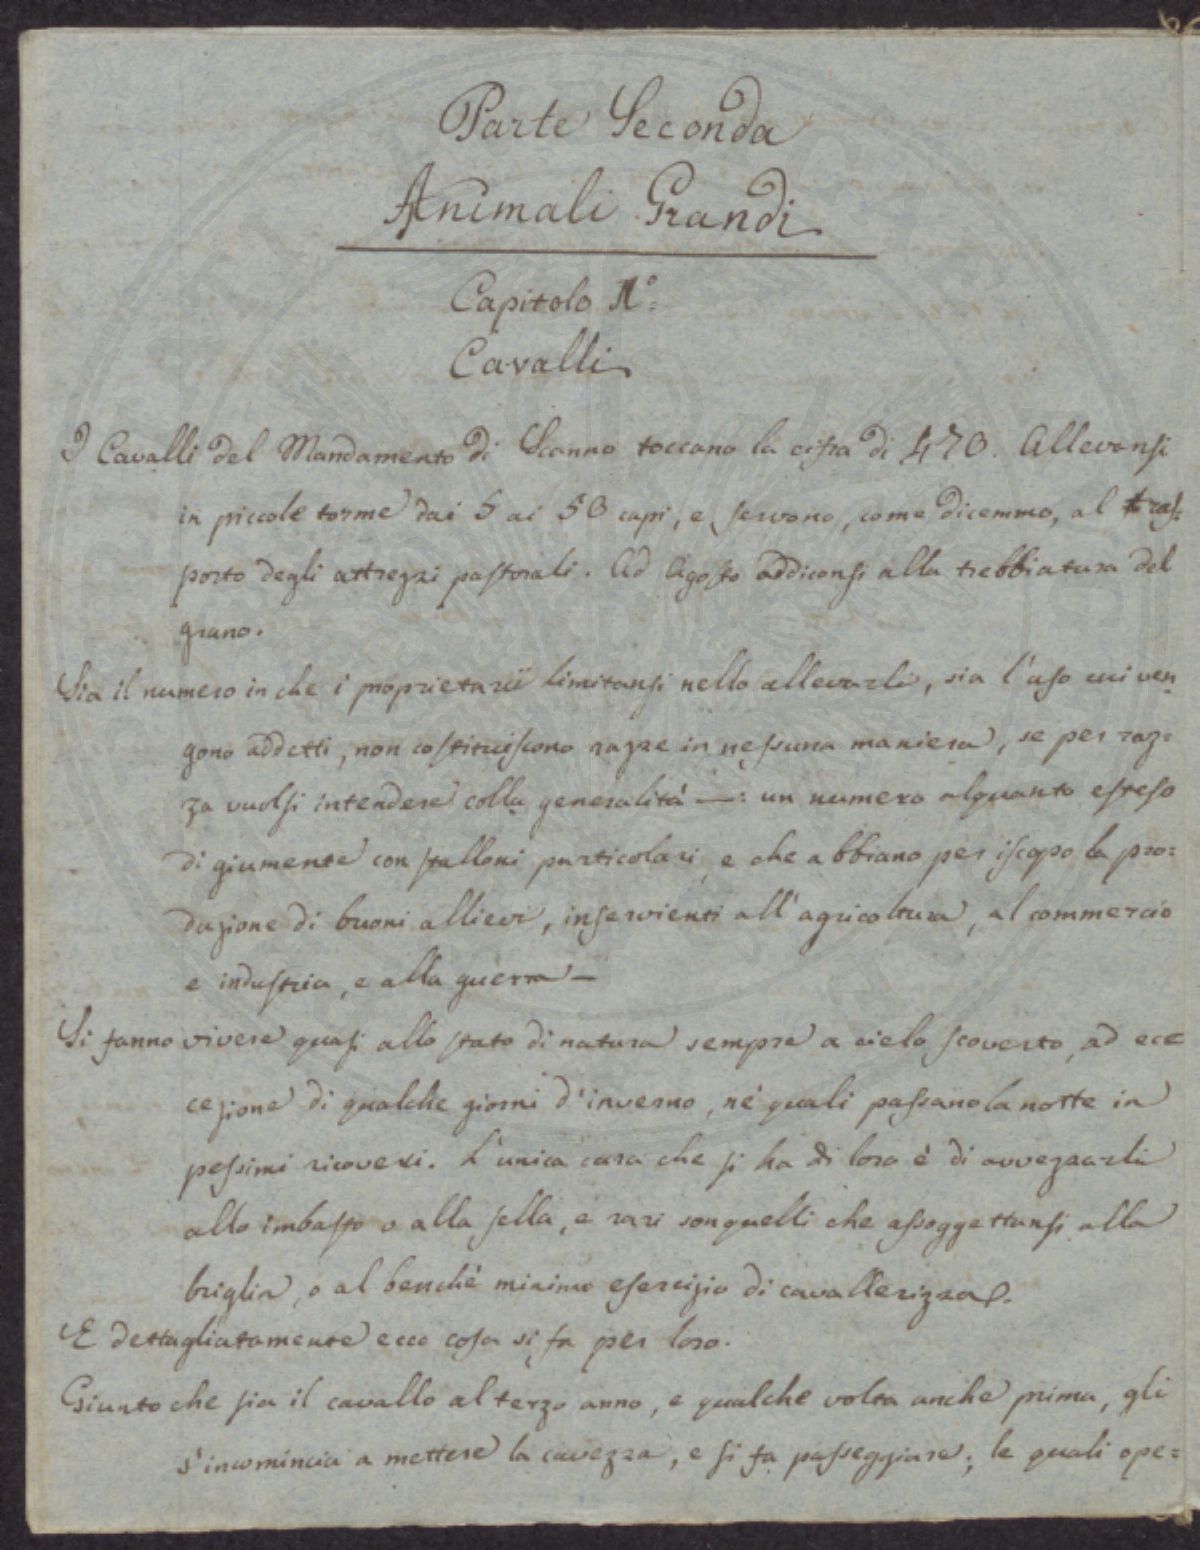 Parte Seconda
Animali Grandi
Capitolo 1º:
Cavalli
I Cavalli del Mandamento di Scanno toccano la cifra di 470. Allevansi
in piccole torme dai 5 ai 50 capi, e servono, come dicemmo, al tras=
porto degli attrezzi pastorali. Ad Agosto addiconsi alla trebbiatura del
grano.
Sia il numero in che i proprietarii limitansi nello allevarli, sia l'uso cui ven
gono addetti, non costituiscono razze in nessuna maniera, se per raz=
za vuolsi intendere colla generalità —: un numero alquanto esteso
di giumente con stalloni particolari, e che abbiano per iscopo la pro=
duzione di buoni allievi, inservienti all'agricoltura, al commercio
e industria, e alla guerra —
Si fanno vivere quasi allo stato di natura sempre a cielo scoverto, ad ecc
cezione di qualche giorni d'inverno, né quali passano la notte in
pessimi ricoveri. L'unica cura che si ha di loro è di avvezzarli
allo imbasto o alla sella, e rari son quelli che assoggettansi alla
briglia, o al benchè minimo esercizio di cavallerizza.
E dettagliatamente ecco cosa si fa per loro.
Giunto che sia il cavallo al terzo anno, e qualche volta anche prima, gli
s'incomincia a mettere la cavezza, e si fa passeggiare; le quali ope=